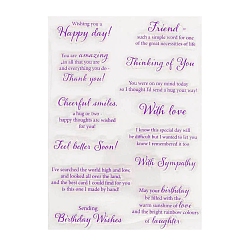 Wishing you a
Happy day!
You are amazing
in all that you are
and everything you do -
Thank you!
Cheerful smiles,
a hug or two
happy thoughts are wished
for you!
Feel better Soon!
I've searched the world high and low
and looked all over the land,
and the best card I could find for you
is this one I made by hand!
Sending
Birthday Wishes
Friend -
such a simple word for one
of the great necessities of life.
Thinking of You
You were on my mind today
so I thought I'd send a hug your way!
With love
I know this special day will
be difficult but I wanted to let you
know I remembered it too
With Sympathy
May your birthday
be filled with the
warm sunshine of love and
the bright rainbow colours
of laughter